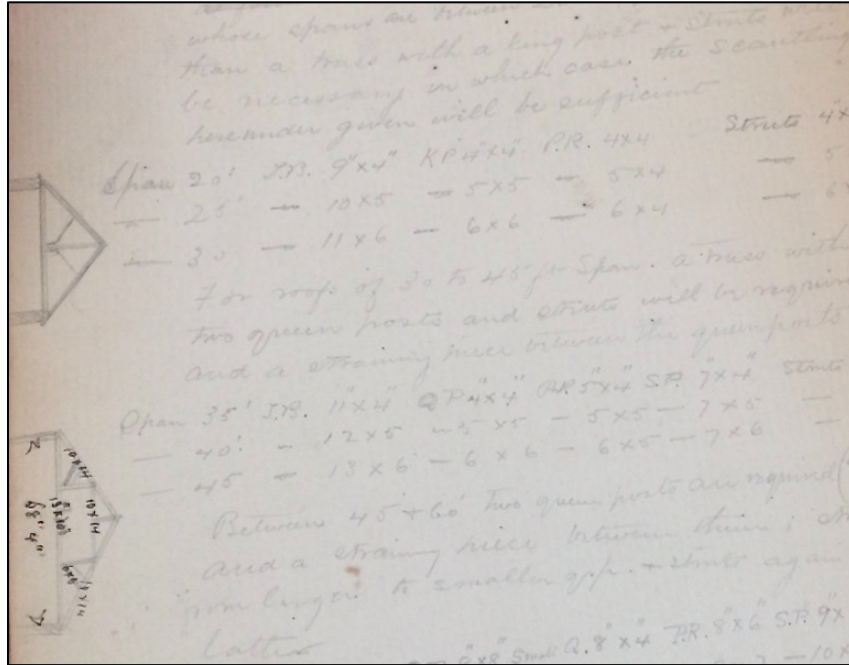 whose spans are between
than a truss with a king post + struts
be necessary in which case the scantling
hereunder given will be sufficient
Span 20' T.B. 9"x4" KP 4"x4" P.R. 4x4 Struts 4"x
— 25' — 10x5 — 5x5 — 5x4 — 5
— 30 — 11x6 — 6x6 — 6x4 — 6x
For roofs of 30 to 45 ft Span. a truss with
two queen posts and struts will be requir
and a straining piece between the queen posts
Span 35' T.B. 11"x4" QP 4"x4" P.R. 5"x4" S.P. 7"x4" Struts
— 40' - 12x5 - 5x5 - 5x5 - 7x5 —
— 45 - 13x6 - 6x6 - 6x5 - 7x6 —
Between 45 + 60' two queen posts are required
and a straining piece between them;
from larger to smaller qpp. + struts again
latter
8"x8" Small Q. 8"x4" P.R. 8"x6" S.P. 9"x
10x
10x14
10x14
10x14
68' 4"